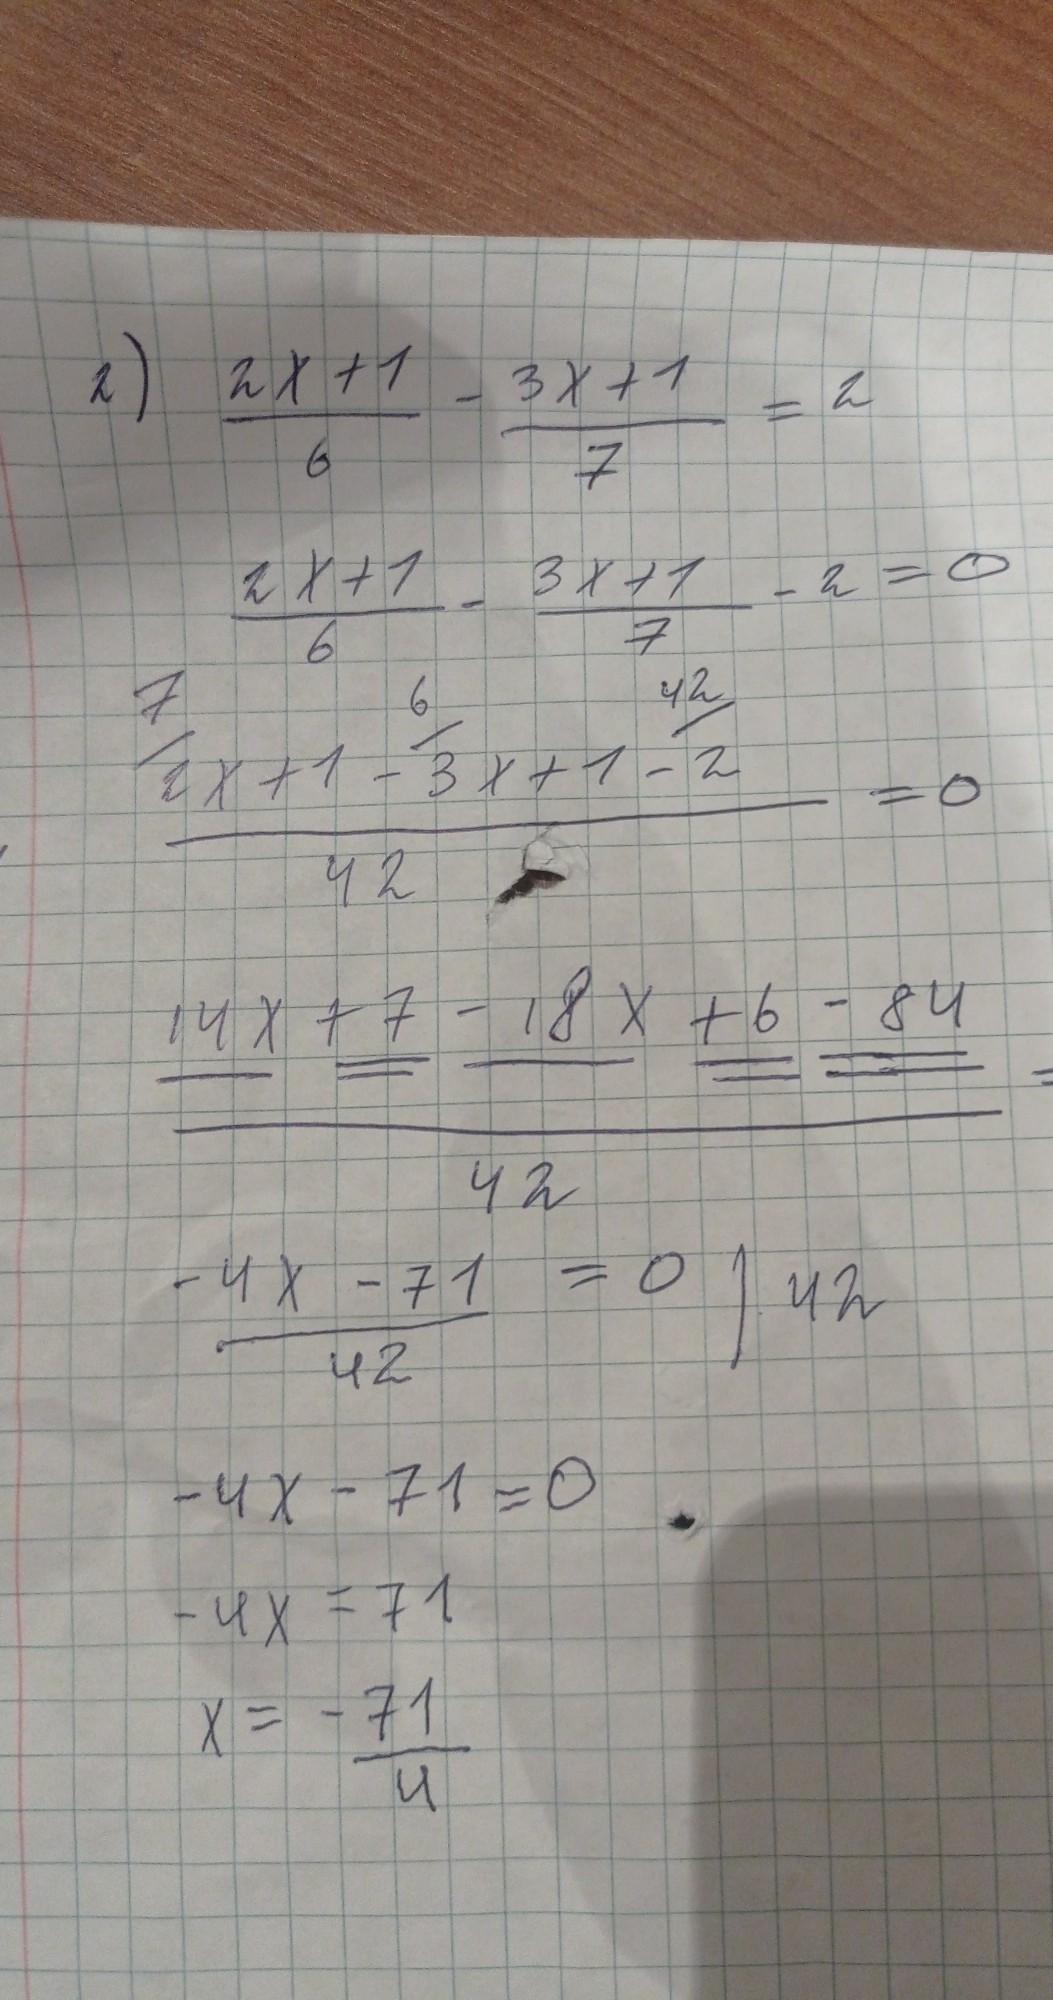 2) (2x+1)/6 - (3x+1)/7 = 2
(2x+1)/6 - (3x+1)/7 - 2 = 0
7/ 6/ 42/
(2x+1 - 3x+1 - 2)/42 = 0
(14x + 7 - 18x + 6 - 84)/42 =
(-4x - 71)/42 = 0 | · 42
-4x - 71 = 0
-4x = 71
x = - 71/4